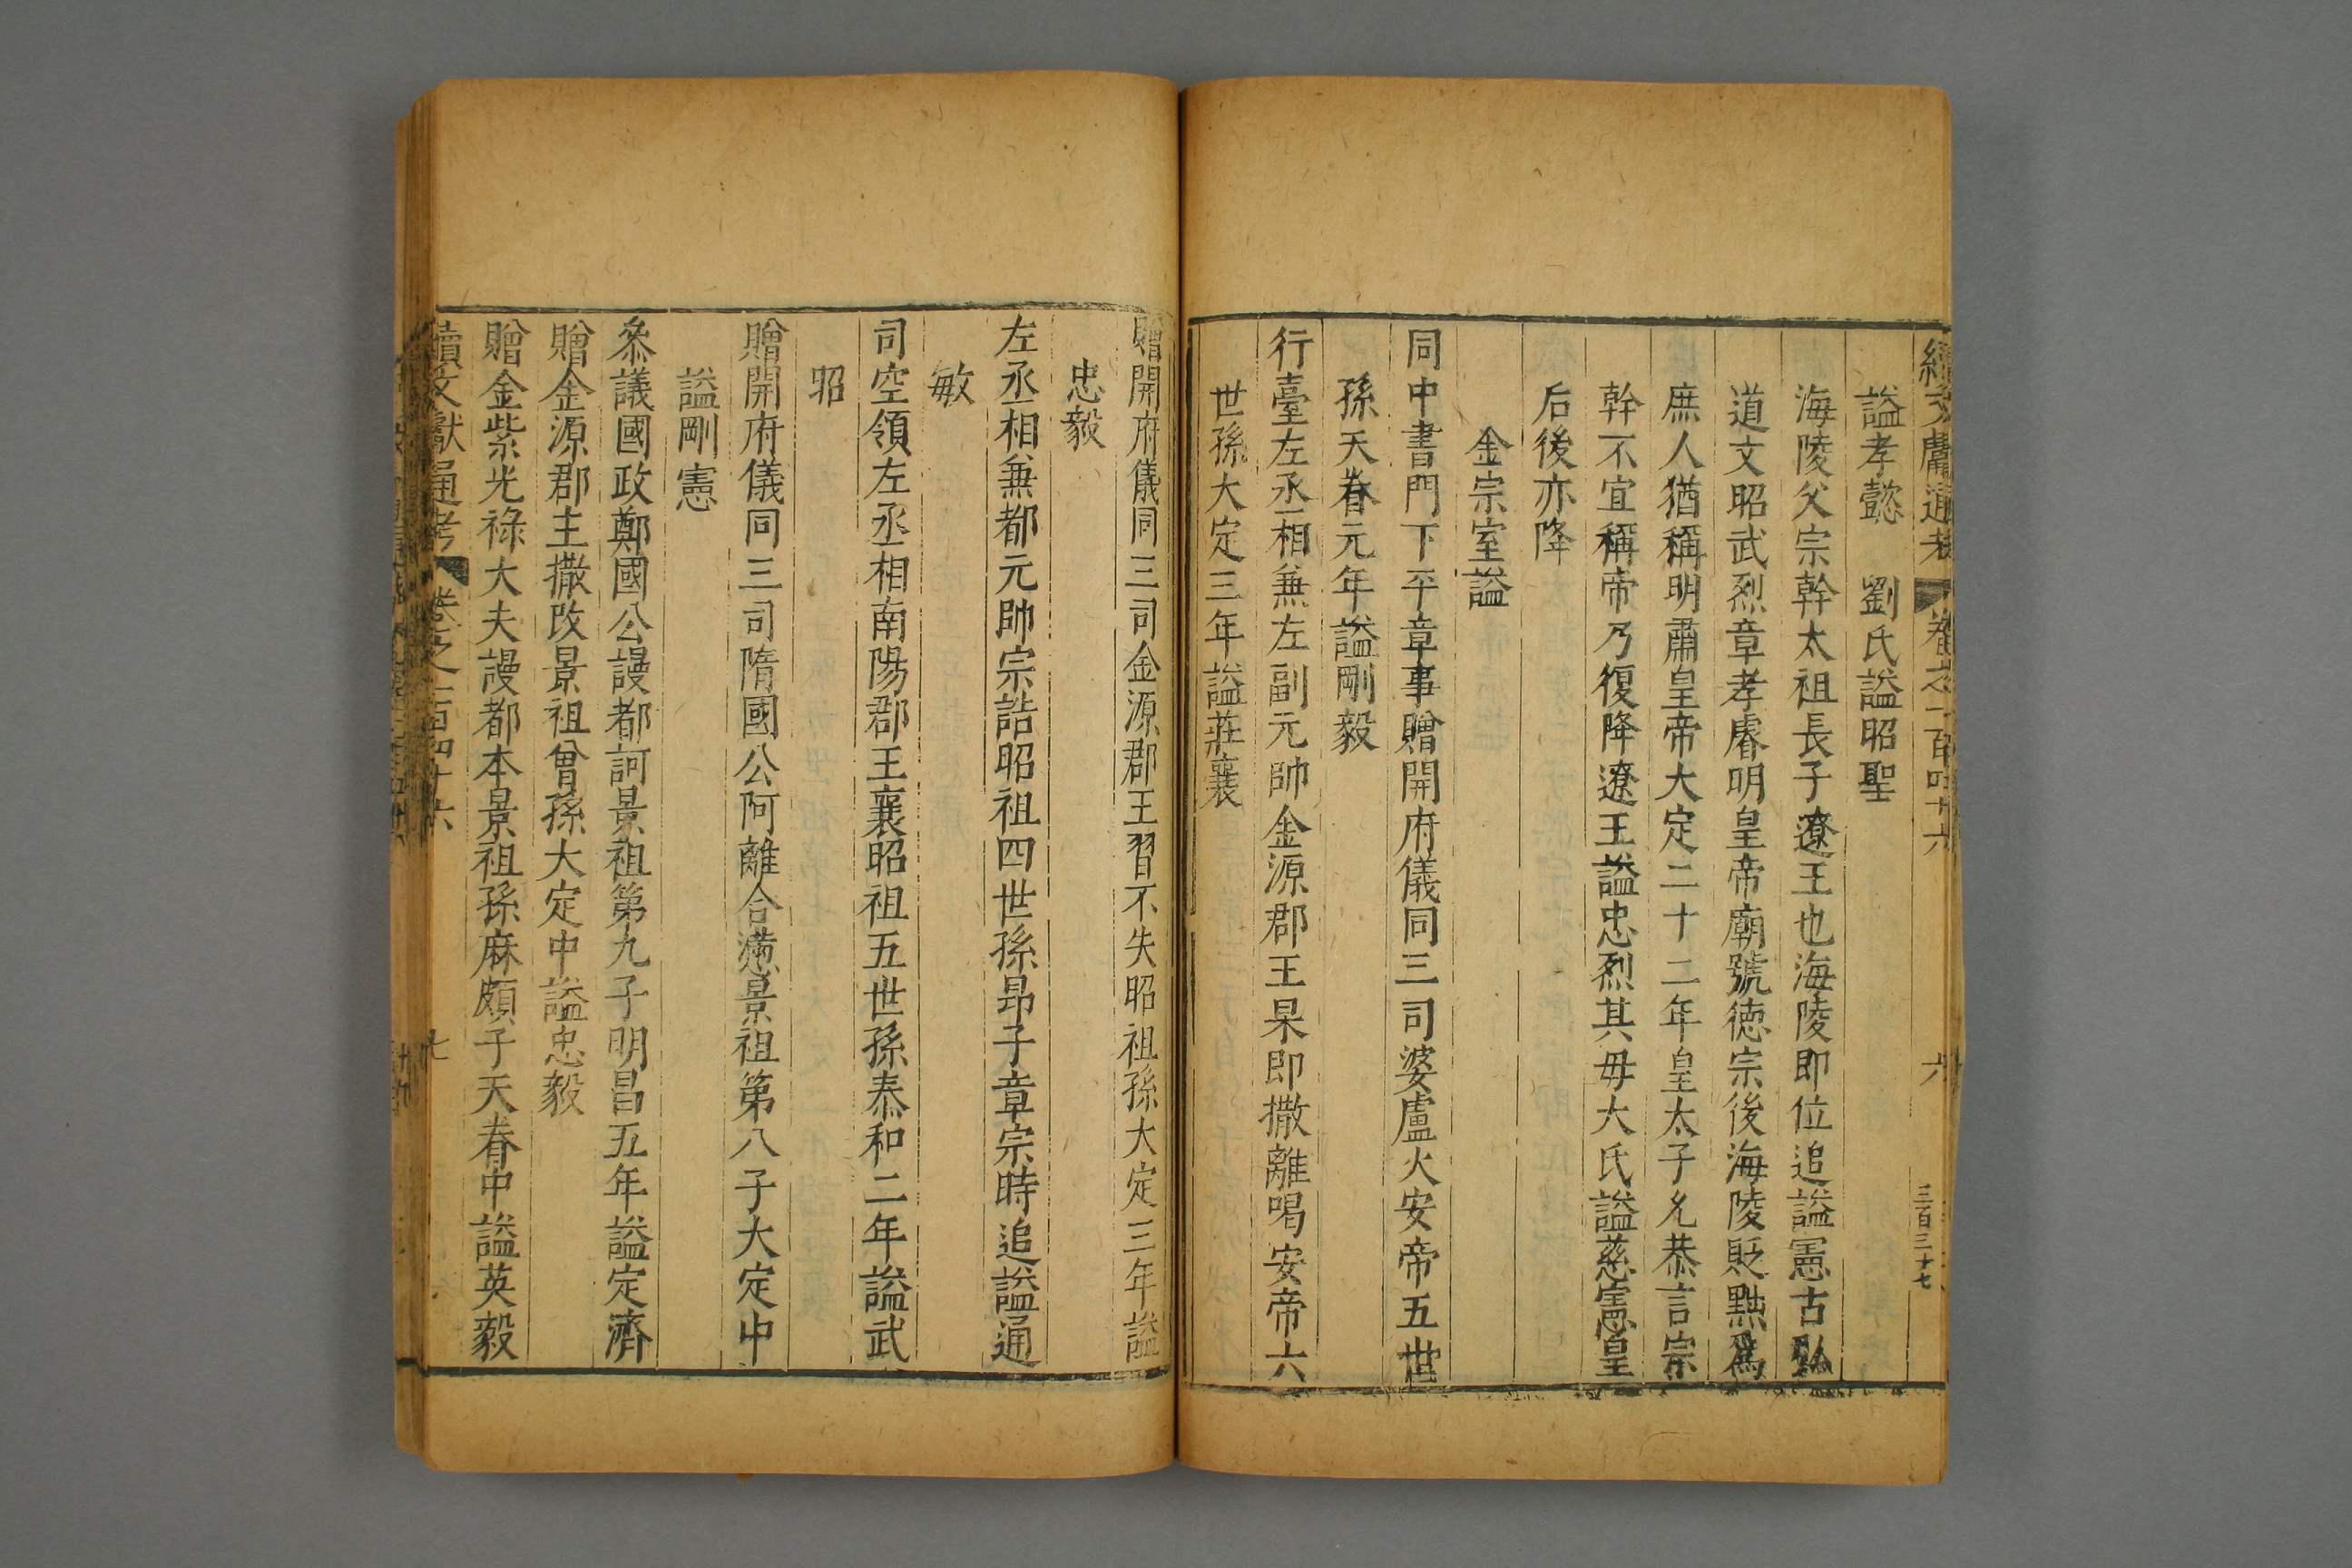 續文獻通考 卷之一百四十六 六 三百三十七
謚孝懿 劉氏謚昭聖
海陵父宗幹太祖長子遼王也海陵即位追謚憲古弘
道文昭武烈章孝睿明皇帝廟號德宗後海陵貶黜爲
庶人猶稱明肅皇帝大定二十二年皇太子允恭言宗
幹不宜稱帝乃復降遼王謚忠烈其毋大氏謚慈憲皇
后後亦降
金宗室謚
同中書門下平章事贈開府儀同三司婆盧火安帝五世
孫天眷元年謚剛毅
行臺左丞相兼左副元帥金源郡王杲即撒離喝安帝六
世孫大定三年謚莊襄
贈開府儀同三司金源郡王習不失昭祖孫大定三年謚
忠毅
左丞相兼都元帥宗誥昭祖四世孫昂子章宗時追謚通
敏
司空領左丞相南陽郡王襄昭祖五世孫泰和二年謚武
昭
贈開府儀同三司隋國公阿離合懣景祖第八子大定中
謚剛憲
叅議國政鄭國公謾都訶景祖第九子明昌五年謚定濟
贈金源郡主撒改景祖曾孫大定中謚忠毅
贈金紫光祿大夫謾都本景祖孫麻頗子天眷中謚英毅
續文獻通考 卷之一百四十六 七